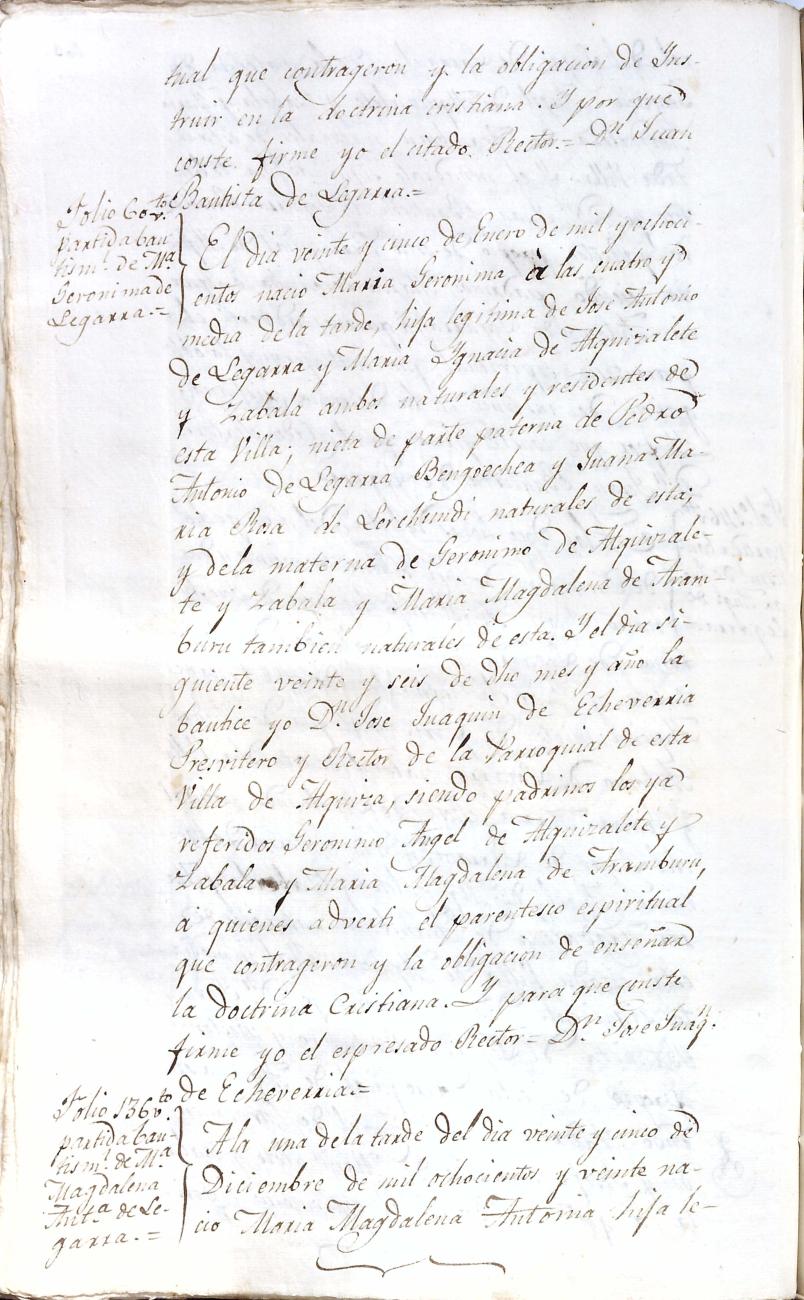 tual que contrageron y la obligacion de Ins-
truir en la doctrina cristiana. Y por que
conste firme yo el citado Rector.= Dn. Juan
Bautista de Legarra.=
Folio 60 vto.
Partida bau-
tisml. de Ma.
Geronima de
Legarra.=
El dia veinte y cinco de Enero de mil y ochoci-
entos nacio Maria Geronima à las cuatro y
media de la tarde, hija legitima de José Antonio
de Legarra y Maria Ignacia de Alquizalete
y Zabala ambos naturales y residentes de
esta Villa; nieta de parte paterna de Pedro
Antonio de Legarra Bengoechea y Juana Ma-
ria Rosa de Lerchundi naturales de esta;
y dela materna de Geronimo de Alquizale-
te y Zabala y Maria Magdalena de Aram-
buru tambien naturales de esta. Y el dia si-
guiente veinte y seis de dho mes y año la
bautice yo Dn. José Juaquin de Echeverria
Presvitero y Rector de la Parroquial de esta
Villa de Alquiza, siendo padrinos los ya
referidos Geronimo Angel de Alquizalete y
Zabala y Maria Magdalena de Aramburu,
á quienes adverti el parentesco espiritual
que contrageron y la obligacion de enseñar
la doctrina Cristiana. Y para que conste
firme yo el espresado Rector= Dn. José Juaqn.
de Echeverria.=
Folio 136 vto.
partida bau-
tisml. de Ma.
Magdalena
Anta. de Le-
garra.=
A la una dela tarde del dia veinte y cinco de
Diciembre de mil ochocientos y veinte na-
cio Maria Magdalena Antonia hija le-